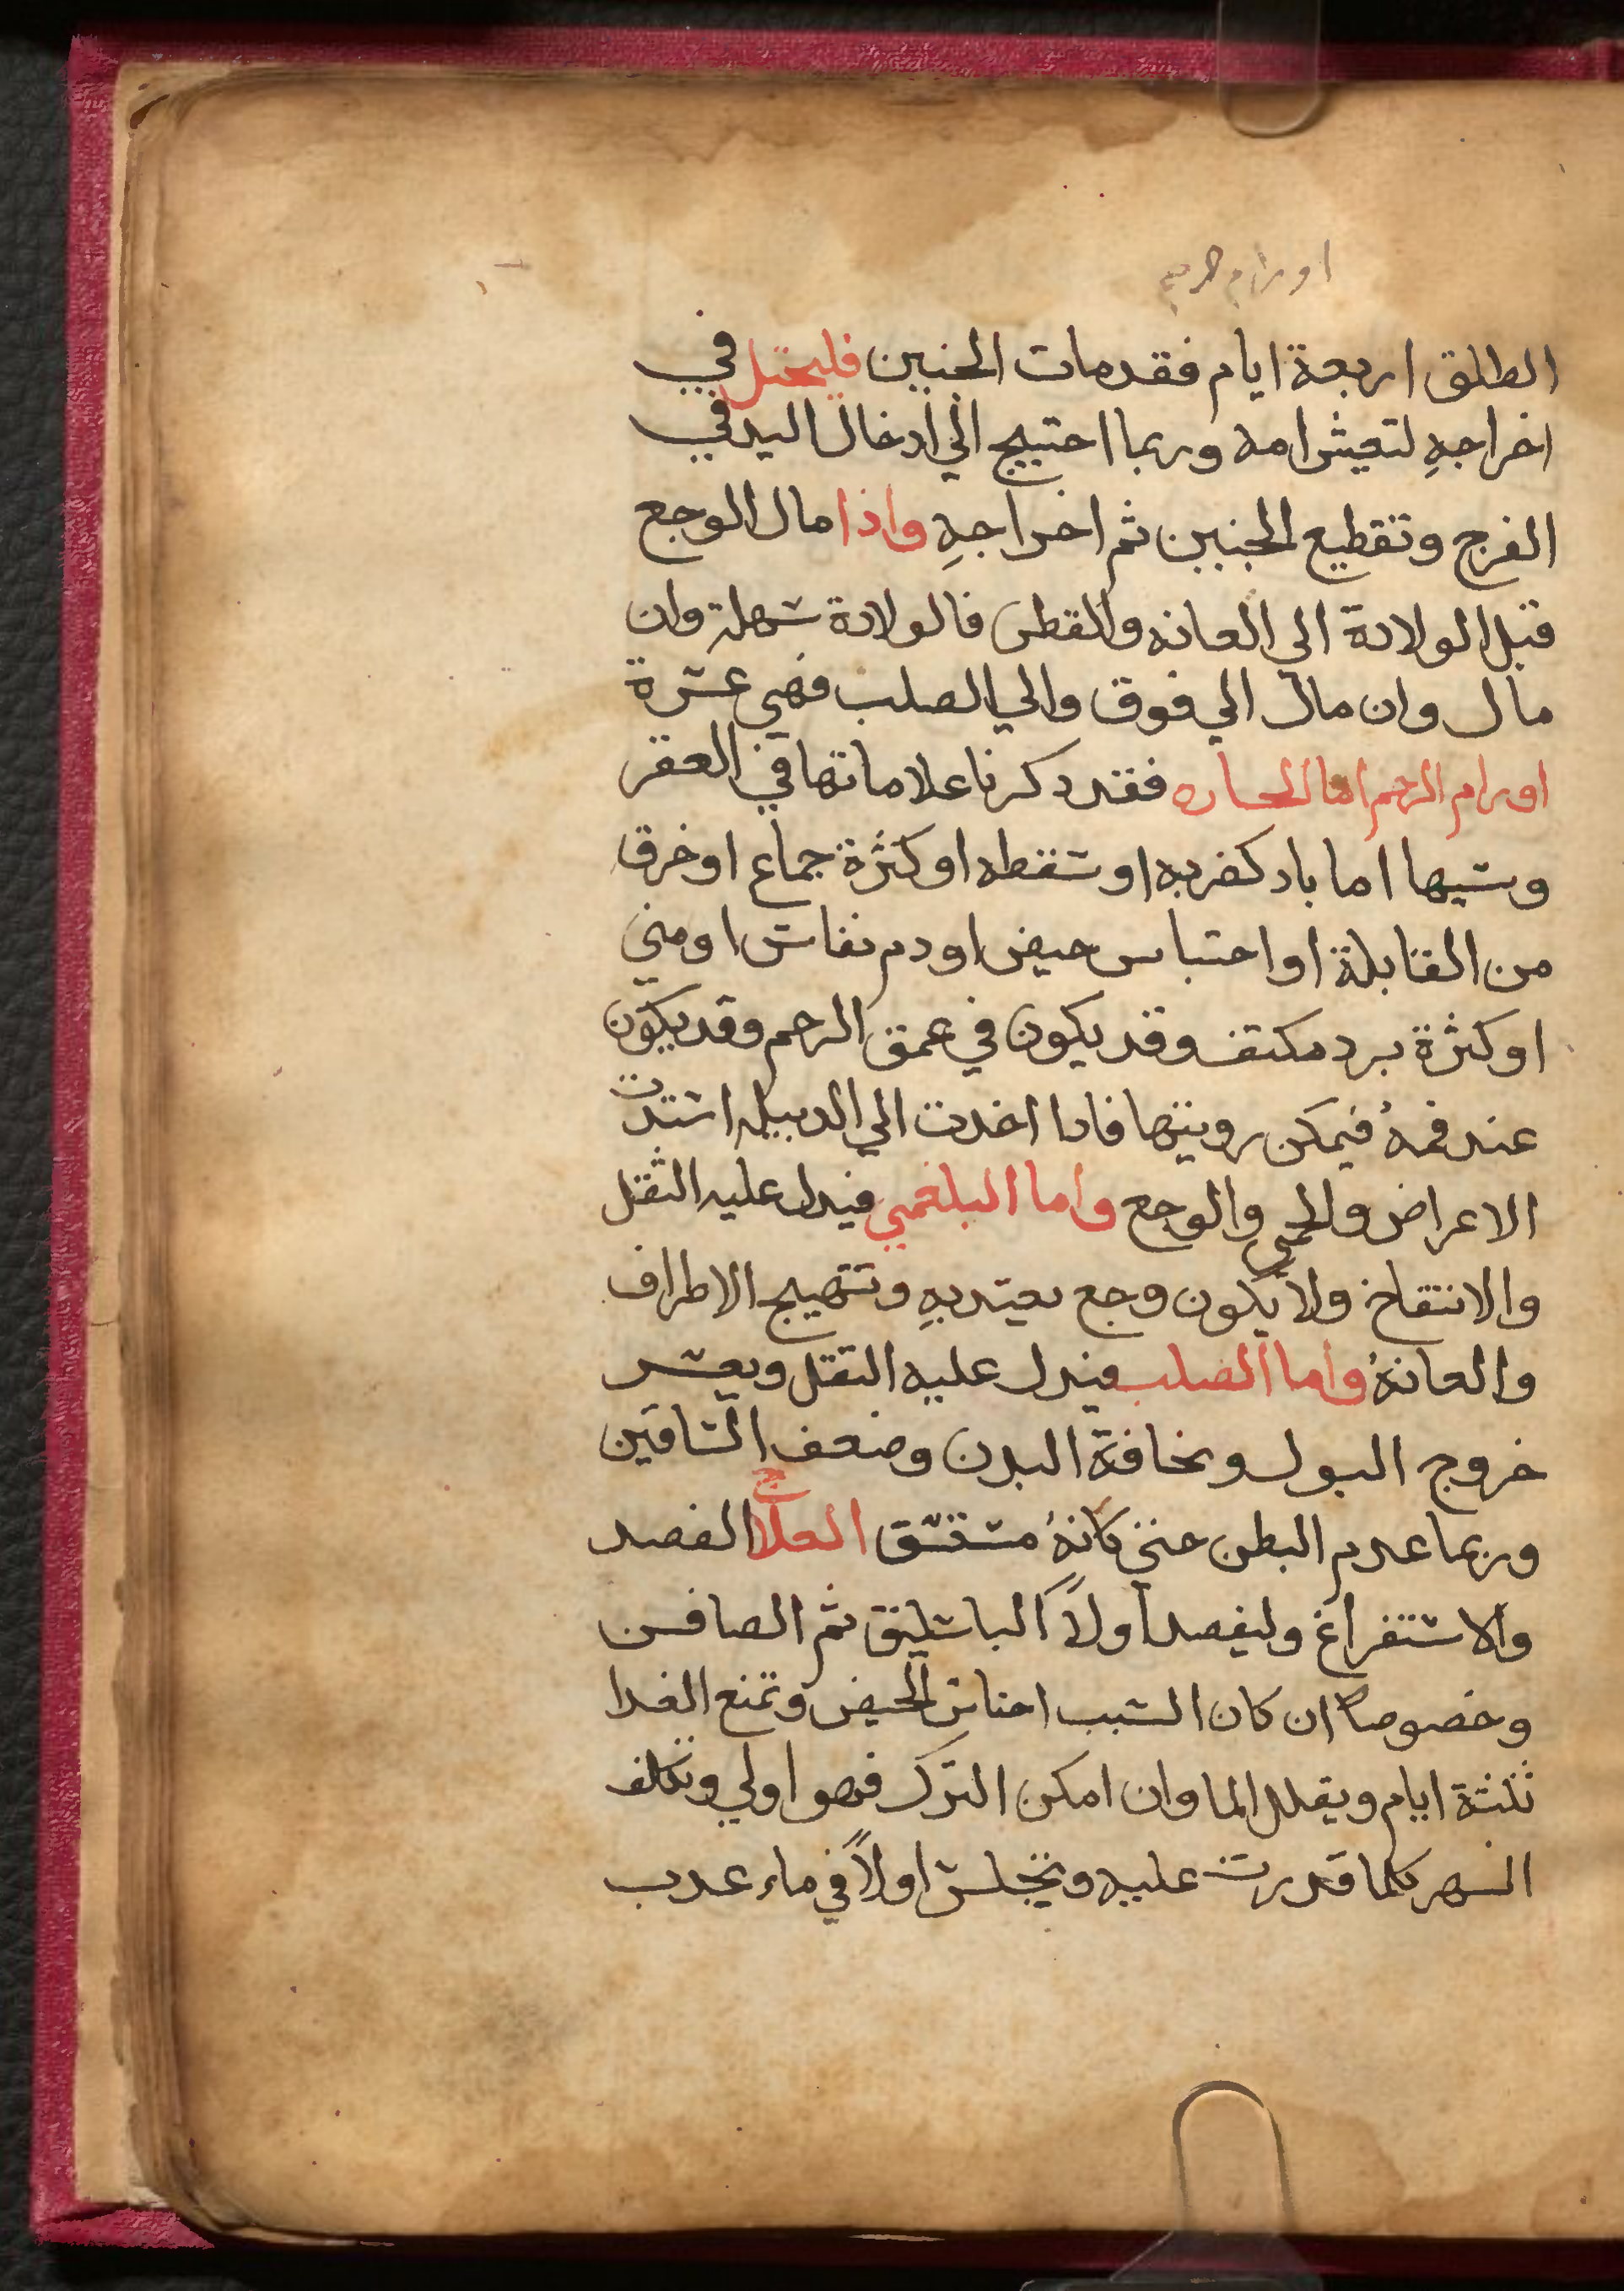 اورام الرحم
الطلق اربعة ايام فقدمات الجنين فليحتل في
اخراجهِ لتعيش امه وربما احتيج الي ادخال اليد في
الفرج وتقطيع الجنين ثم اخراجهِ واذا مال الوجع
قبل الولادة الي العانه والقطن فالولادة سهلة وان
مال وان مال الي فوق والي الصلب فهي عسرة
اورام الرحم اما الحاره فقد دكرنا علاماتها في العقر
وسببها اما باد كضربه او سقطه او كثرة جماع او خرق
من القابلة او احتباس حيض او دم نفاس او مني
او كثرة برد مكثف وقد يكون في عمق الرحم وقد يكون
عند فمهُ فيمكن رويتها فادا اخدت الي الدبيله اشتدت
الاعراض والحمي والوجع واما البلغمي فيدل عليه الثقل
والانتفاخ ولا يكون وجع يعتد بهِ وتتهيج الاطراف
والعانهُ واما الصلب فيدل عليه الثقل ويعسر
خروج البول ونحافة البدن وضعف الساقين
وربما عدم البطن حتي كانهُ مستسق العلاج الفصد
والاستفراغ وليفصد اولاً الباسليق ثم الصافن
وخصوصاً ان كان السبب احتباس الحيض وتمنع الغدا
ثلثة ايام ويقلل الما وان امكن الترك فهو اولي وتكلف
السهر كلما قدرت عليه وتجلس اولاً في ماء عدب